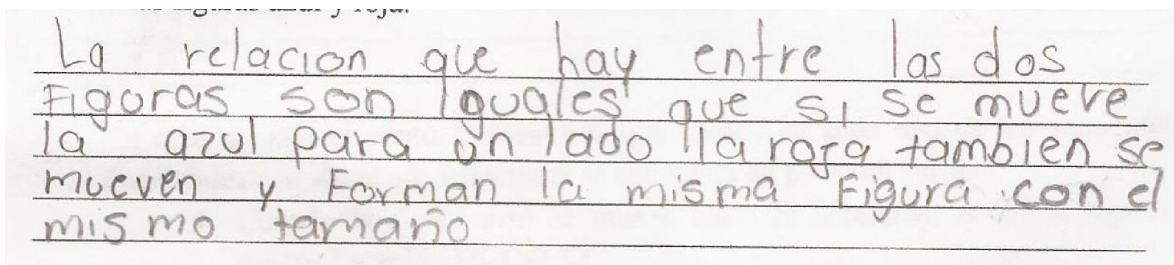 La relacion que hay entre las dos
Figuras son iguales que si se mueve
la azul para un lado la roja tambien se
mueven y Forman la misma Figura con el
mismo tamaño